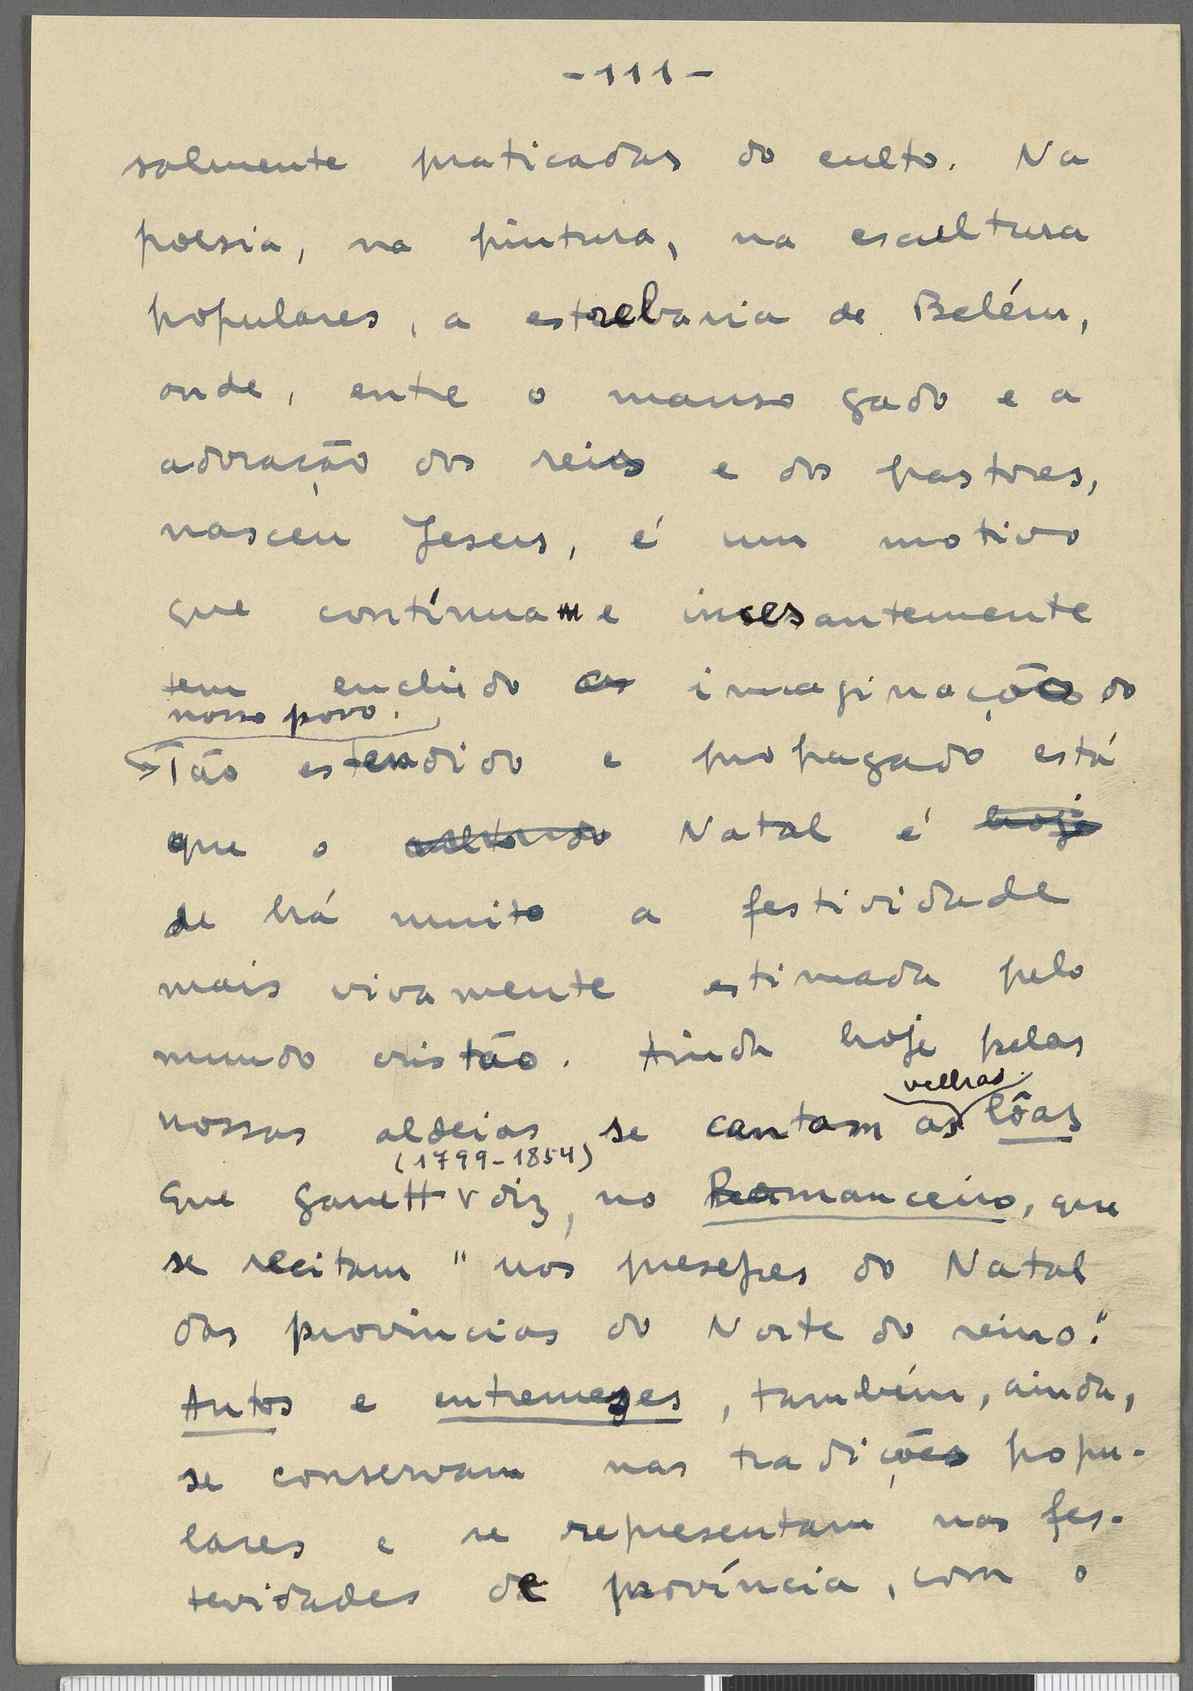 -111-
salmente praticadas do culto. Na
poesia, na pintura, na escultura
populares, a estrebaria de Belém,
onde, entre o manso gado e a
adoração dos reis e dos pastores,
nasceu Jesus, é um motivo
que contínua e incesantemente
tem enchido a imaginação do
nosso povo.
Tão estendido e propagado está
que o Natal é hoje
de há muito a festividade
mais vivamente estimada pelo
mundo cristão. Ainda hoje pelas
velhas
nossas aldeias se cantam as lôas
(1799-1854)
que Garrett diz, no Romanceiro, que
se recitam "nos presepes do Natal
das províncias do Norte do reino."
Autos e entremezes, também, ainda,
se conservam nas tradições popu-
lares e se representam nas fes-
tividades de província, com o